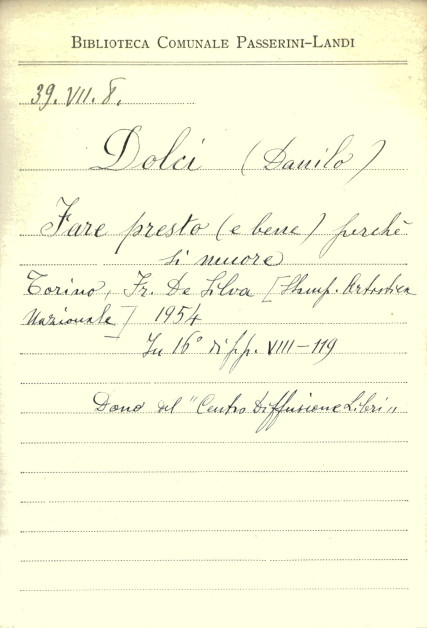 BIBLIOTECA COMUNALE PASSERINI-LANDI
39. VII. 8.
Dolci (Danilo)
Fare presto (e bene) perchè
si muore
Torino, Fr. De Silva [Stamp. Artistica
Nazionale] 1954
In 16° di pp. VIII-119
Dono del "Centro Diffusione Libri"